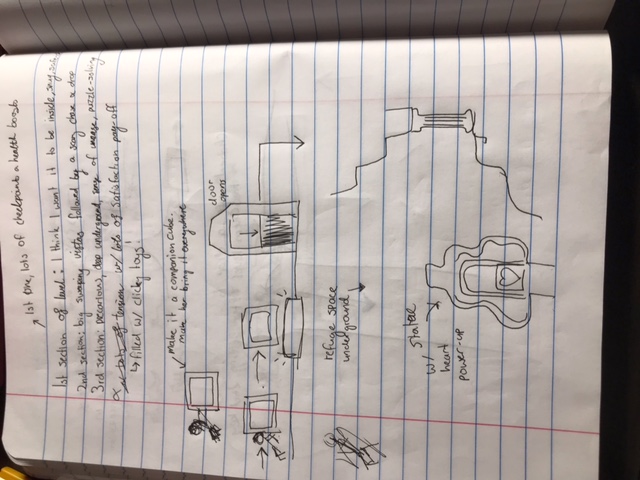 1st one, lots of checkpoints & health boosts
1st section of level: I think I want it to be inside, snug,
2nd section: big sweeping vistas followed by a scary chase & drop
3rd section: precarious, deep underground, sense of unease, puzzle-solving
Lots of tension w/ lots of satisfaction pay-off
filled w/ clicky toys!
make it a companion cube.
make her bring it everywhere
door
opens
refuge space
underground
statue
w/
heart
power-up